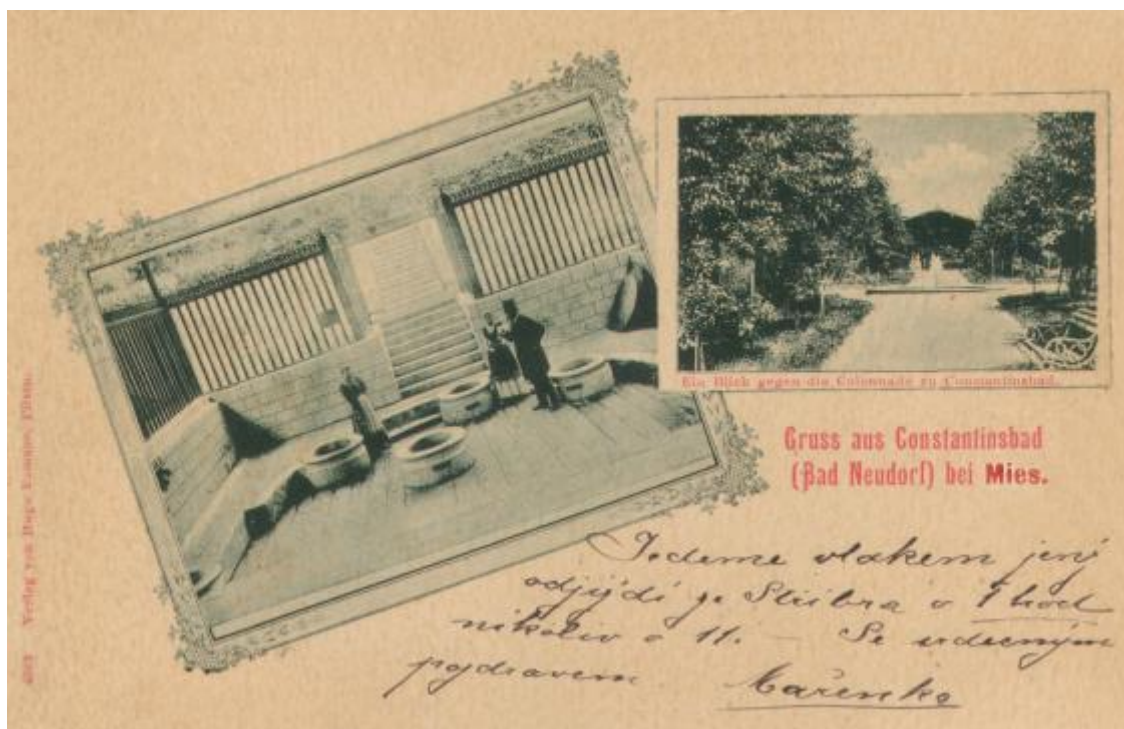 Ein Blick gegen die Colonnade zu Constantinsbad.
Gruss aus Constantinsbad
(Bad Neudorf) bei Mies.
Jedeme vlakem jenž
odjíždí ze Stříbra o 1 hod
nikoliv o 11. — Se srdečným
pozdravem Mařenka
Verlag von Hugo Pilsen.